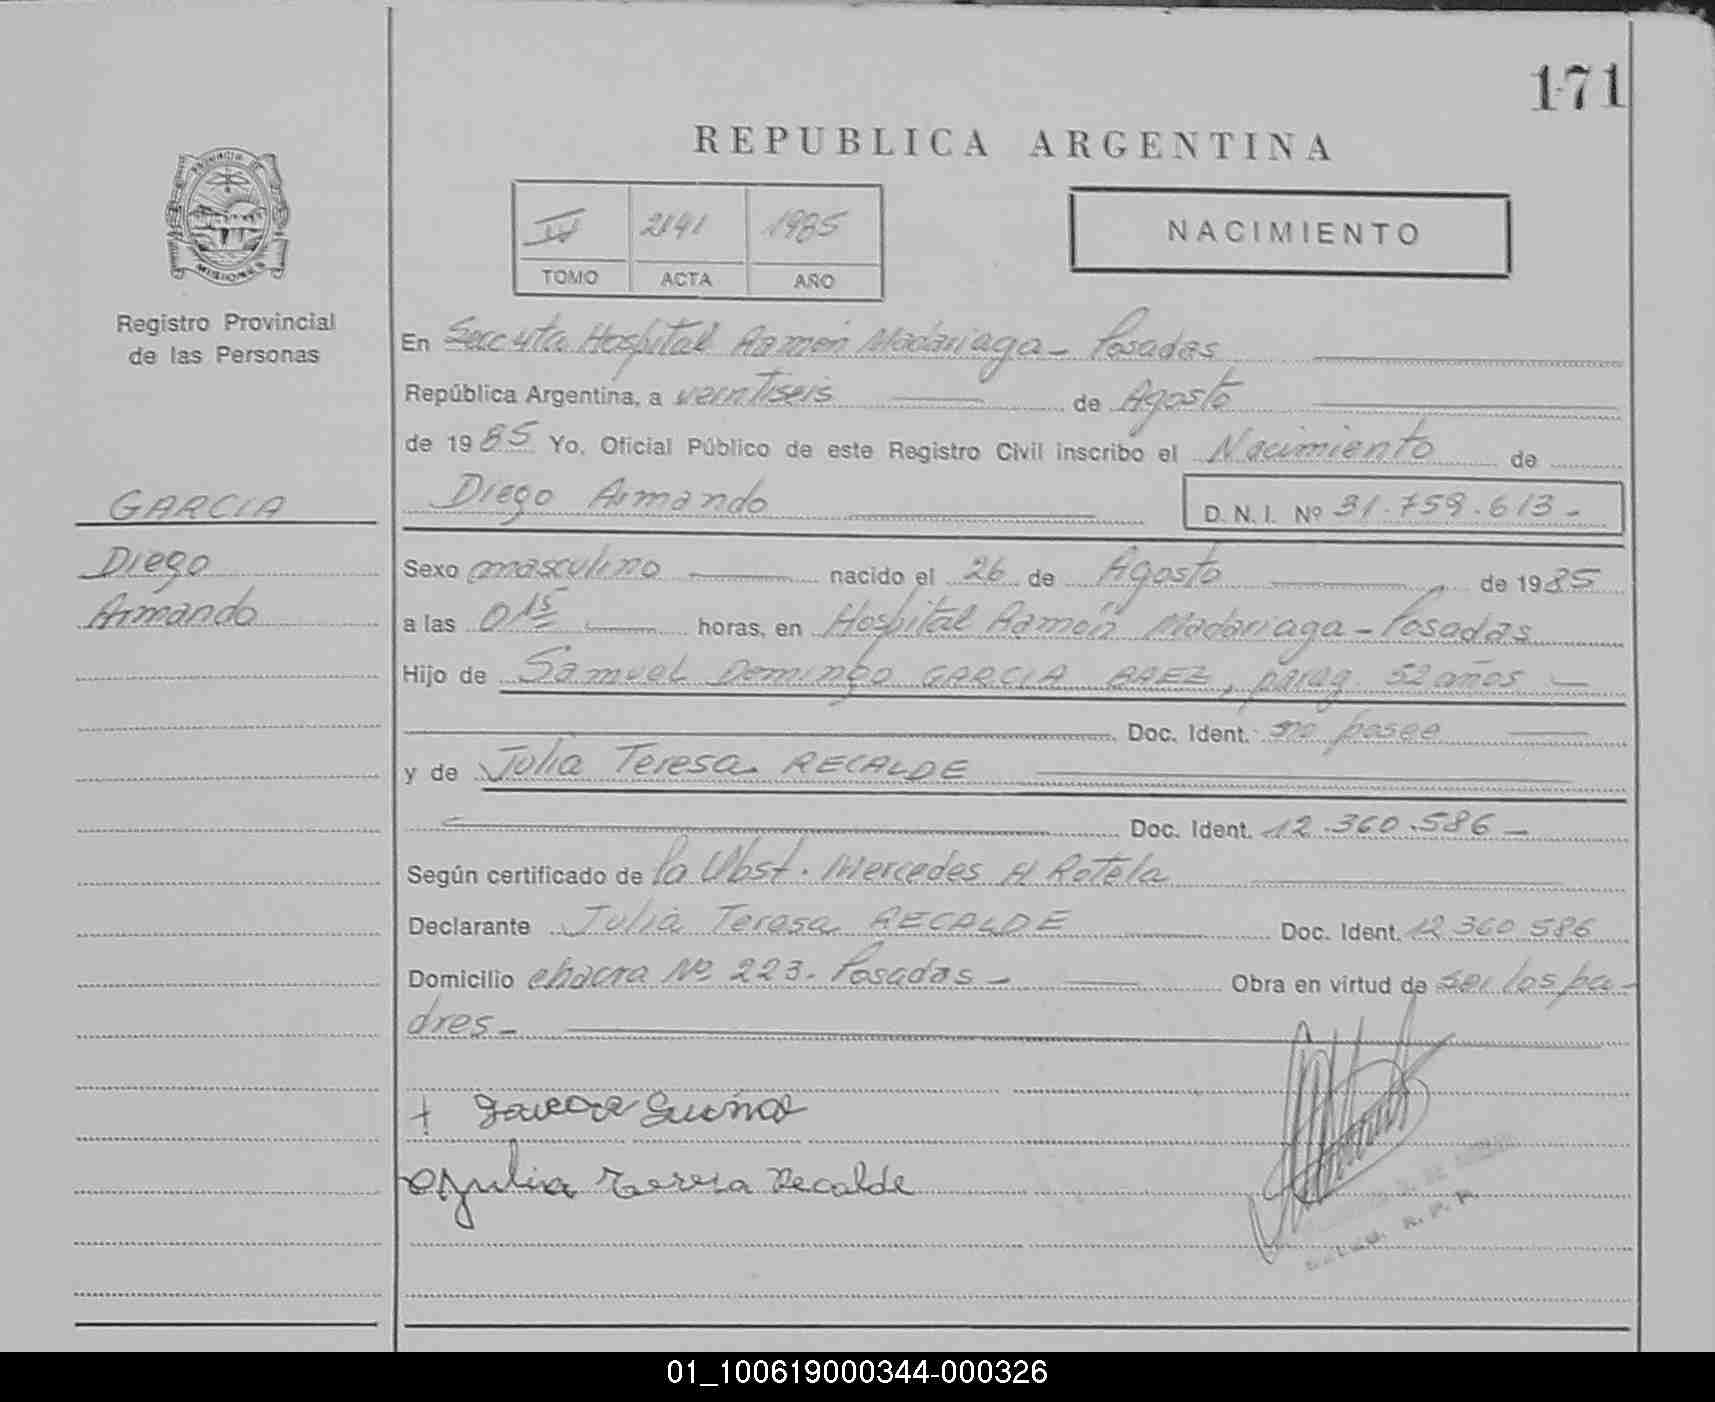 171
REPUBLICA ARGENTINA
PROVINCIA DE
MISIONES
Registro Provincial
de las Personas
IV 2141 1985
TOMO ACTA AÑO
NACIMIENTO
En Secc 4ta Hospital Ramón Madariaga - Posadas
República Argentina, a veintiseis de Agosto
de 1985 Yo, Oficial Público de este Registro Civil inscribo el Nacimiento de
GARCIA
Diego Armando D. N. I. Nº 31.759.613.-
Diego
Armando
Sexo masculino nacido el 26 de Agosto de 1985
a las 0 15 horas, en Hospital Ramón Madariaga - Posadas
Hijo de Samuel Domingo GARCIA BAEZ, parag. 52 años -
Doc. Ident. no posee
y de Julia Teresa RECALDE
Doc. Ident. 12.360.586 -
Según certificado de la Obst. Mercedes H Rotela
Declarante Julia Teresa RECALDE Doc. Ident. 12 360 586
Domicilio chacra Nº 223. Posadas - Obra en virtud de ser los pa-
dres -
Julia Teresa Recalde
R. P. P.
01_100619000344-000326